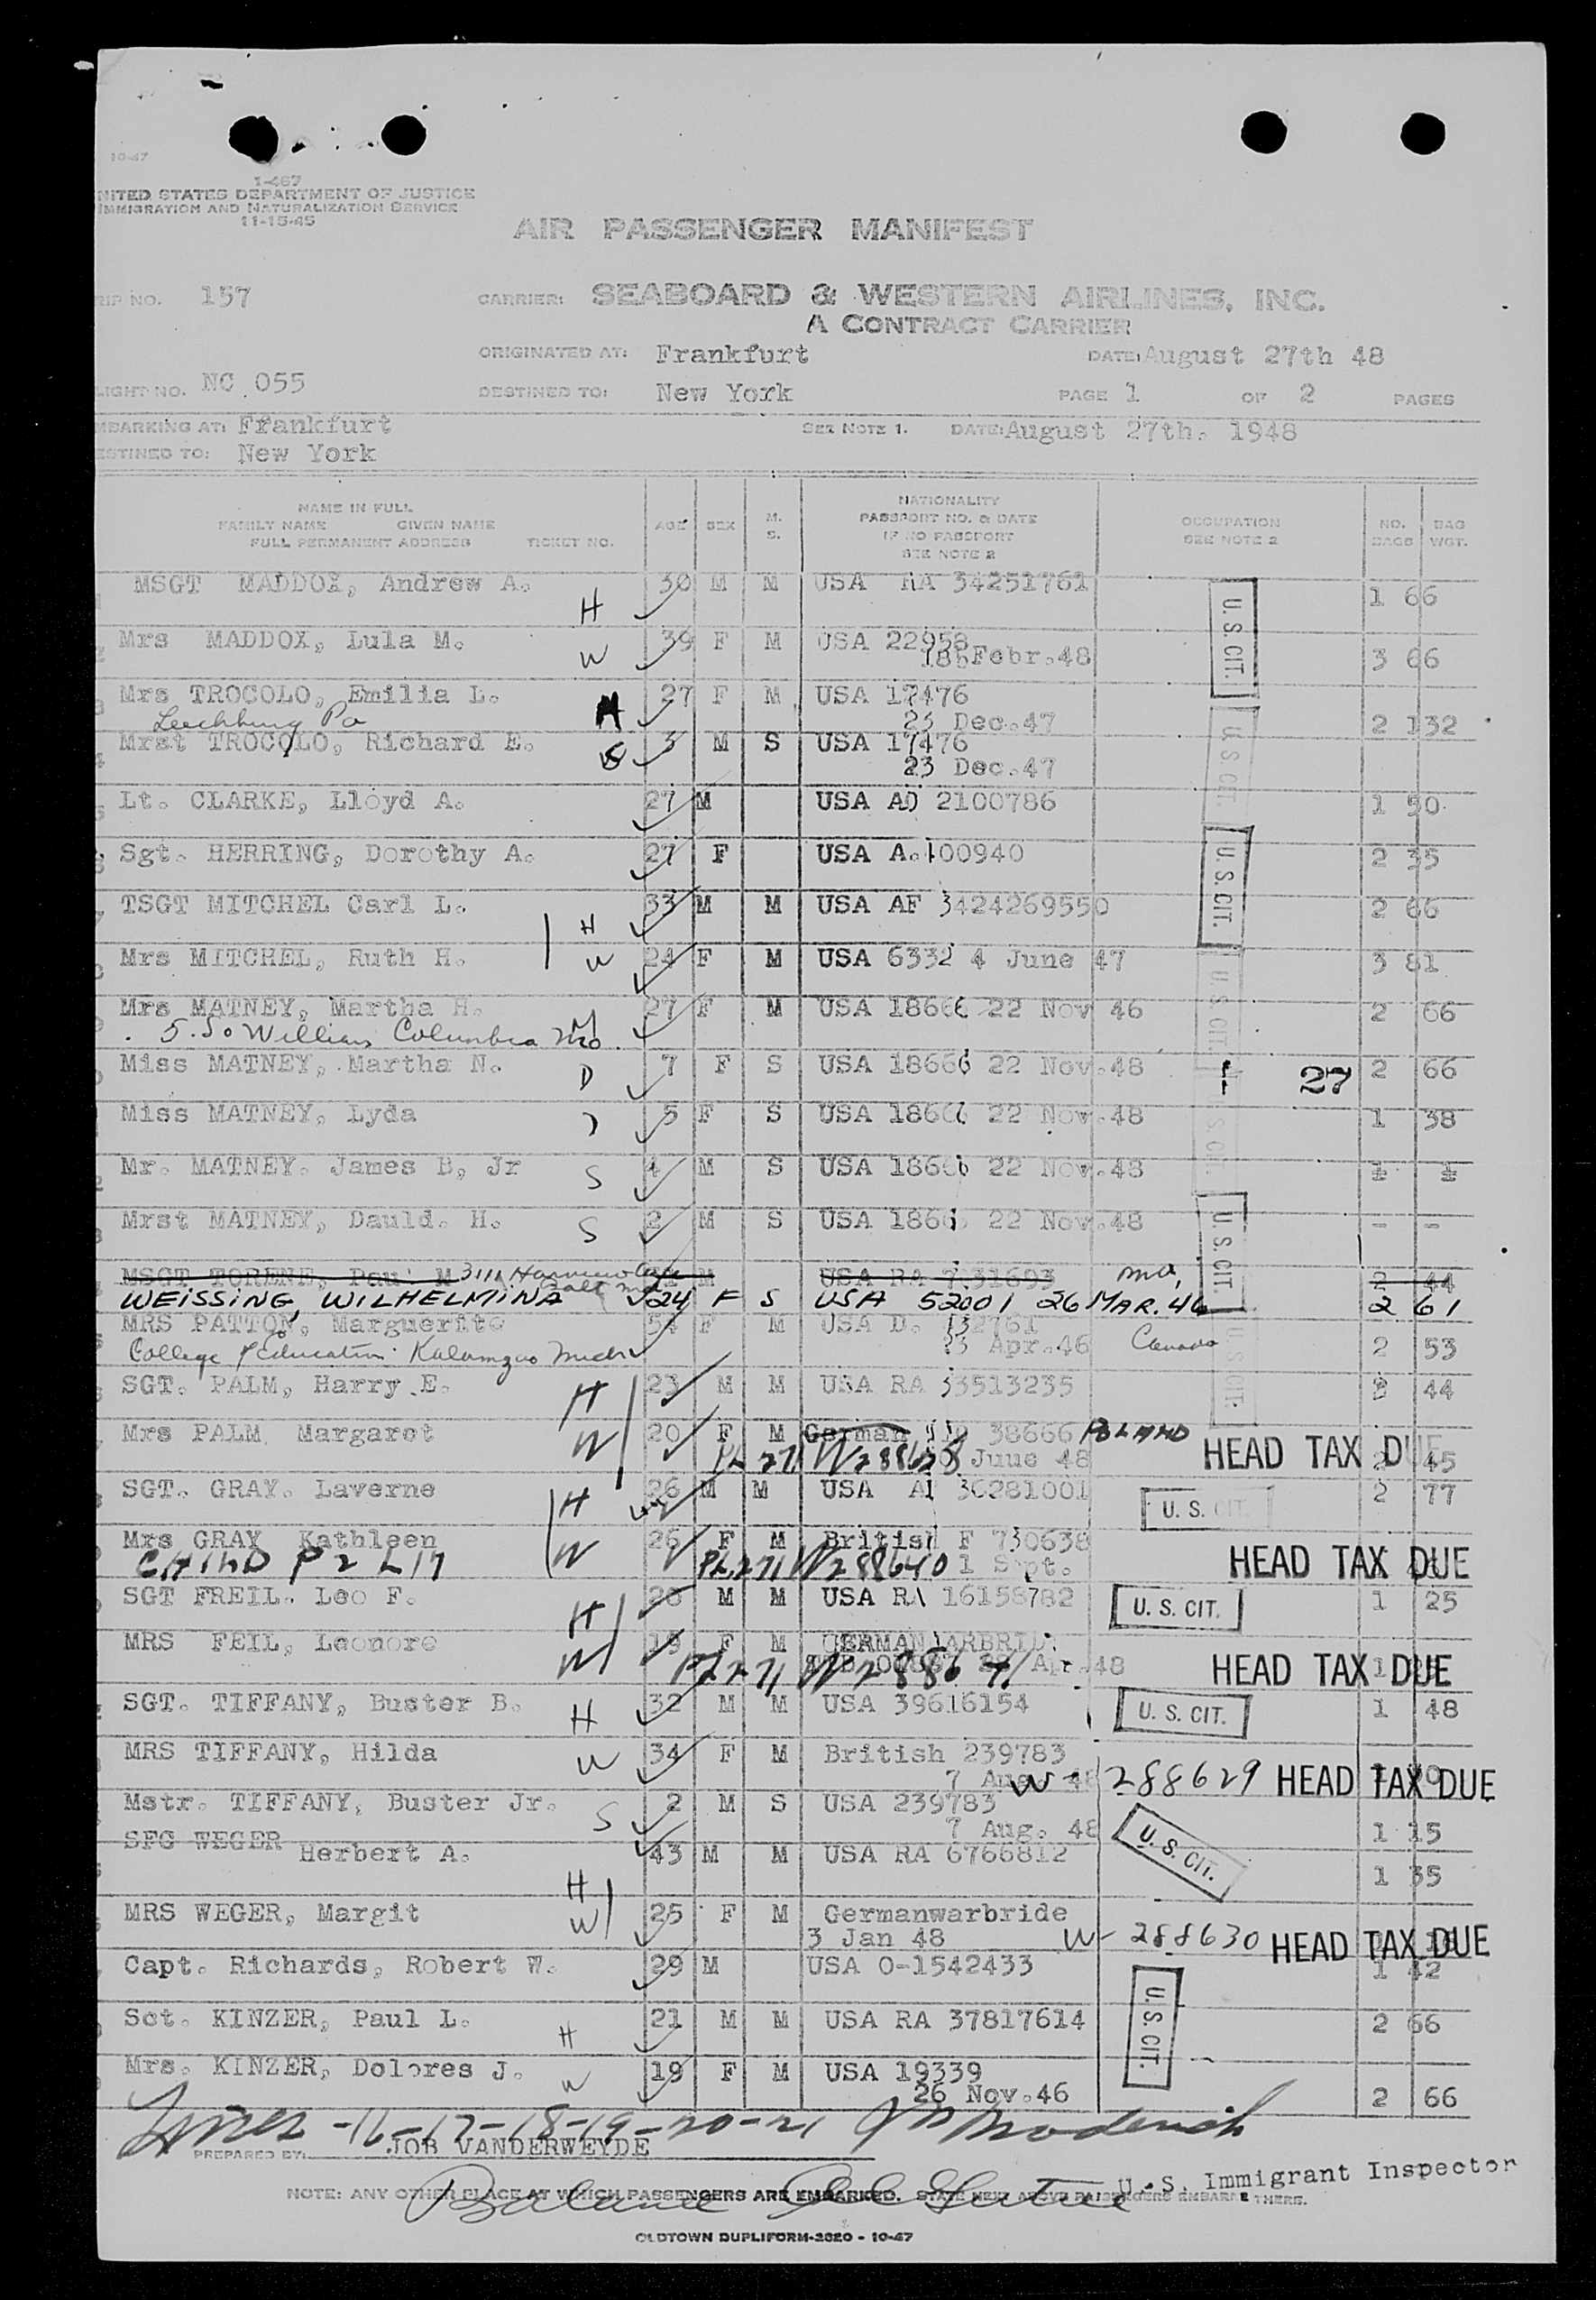 10-47
1-467
NITED STATES DEPARTMENT OF JUSTICE
IMMIGRATION AND NATURALIZATION SERVICE
11-15-45
AIR PASSENGER MANIFEST
RIP NO. 157 CARRIER: SEABOARD & WESTERN AIRLINES, INC.
A CONTRACT CARRIER
ORIGINATED AT: Frankfurt DATE: August 27th 48
LIGHT NO. NC 055 DESTINED TO: New York PAGE 1 OF 2 PAGES
MBARKING AT: Frankfurt SEE NOTE 1. DATE: August 27th. 1948
ESTINED TO: New York
NAME IN FULL
FAMILY NAME GIVEN NAME
FULL PERMANENT ADDRESS TICKET NO.
AGE SEX M. S.
NATIONALITY
PASSPORT NO. & DATE
IF NO PASSPORT
SEE NOTE 2
OCCUPATION
SEE NOTE 2
NO. BAGS BAG WGT.
MSGT MADDOX, Andrew A. H 30 M M USA RA 34251761 1 66
U.S. CIT.
Mrs MADDOX, Lula M. W 39 F M USA 22958 3 66
18 Febr. 48
Mrs TROCOLO, Emilia L. 27 F M USA 17476
Leechburg Pa 23 Dec. 47 2 132
Mrst TROCOLO, Richard E. S 3 M S USA 17476
23 Dec. 47
U.S. CIT.
Lt. CLARKE, Lloyd A. 27 M USA AO 2100786 1 50
Sgt. HERRING, Dorothy A. 27 F USA A. 100940 2 35
U.S. CIT.
TSGT MITCHEL Carl L. H 33 M M USA AF 3424269550 2 66
Mrs MITCHEL, Ruth H. W 24 F M USA 6332 4 June 47 3 81
Mrs MATNEY, Martha H. 27 F M USA 18666 22 Nov 46 2 66
5. So William Columbia Mo. M
U.S. CIT.
Miss MATNEY, Martha N. D 7 F S USA 18666 22 Nov. 48 27 2 66
Miss MATNEY, Lyda D 5 F S USA 18666 22 Nov. 48 1 38
U.S. CIT.
Mr. MATNEY. James B, Jr S 4 M S USA 18666 22 Nov. 48
Mrst MATNEY, Dauld. H. S 2 M S USA 1866 22 Nov. 48 - -
U.S. CIT.
MSGT TORENE, Paul M 3111 M USA RA 7.31693 Md, 2 44
WEISSING, WILHELMINA 24 F S USA 52001 26 MAR. 46 2 61
MRS PATTON, Marguerite 54 F M USA D. 132761
College of Education Kalamazoo Mich 23 Apr. 46 Canada 2 53
U.S. CIT.
SGT. PALM, Harry E. H 23 M M USA RA 33513235 44
Mrs PALM Margaret W 20 F M German 38666 POLAND
PL 271 W288628 June 48 HEAD TAX DUE 2 45
SGT. GRAY. Laverne H 26 M M USA AF 36281001 U. S. CIT. 2 77
Mrs GRAY Kathleen W 26 F M British F 730638
CHIND P2 L17 PL271 W288640 1 Sept. HEAD TAX DUE
SGT FREIL. Leo F. H 26 M M USA RA 16158782 U. S. CIT. 1 25
MRS FEIL, Leonore W 19 F M GERMAN WARBRIDE
PL271 W28864 Apr. 48 HEAD TAX DUE
SGT. TIFFANY, Buster B. H 32 M M USA 39616154 U. S. CIT. 1 48
MRS TIFFANY, Hilda W 34 F M British 239783
7 Aug 48 W- 288629 HEAD TAX DUE
Mstr. TIFFANY, Buster Jr. S 2 M S USA 239783
7 Aug. 48 U. S. CIT. 1 15
SFG WEGER Herbert A. H 43 M M USA RA 6766812 1 35
MRS WEGER, Margit W 25 F M Germanwarbride
3 Jan 48 W- 288630 HEAD TAX DUE
Capt. Richards, Robert W. 29 M USA O-1542433 1 42
U.S CIT.
Sct. KINZER, Paul L. H 21 M M USA RA 37817614 2 66
Mrs. KINZER, Dolores J. W 19 F M USA 19339
26 Nov. 46 2 66
Lines -16-17-18-19-20-21
PREPARED BY: JOB VANDERWEYDE
U.S. Immigrant Inspector
Balance
NOTE: ANY OTHER PLACE AT WHICH PASSENGERS ARE EMBARKED. STATE NEXT ABOVE PASSENGERS EMBARKE THERE.
OLDTOWN DUPLIFORM-2820 - 10-47